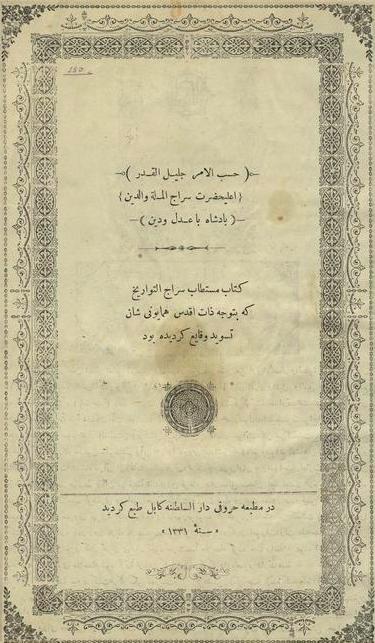 150
( حسب الامر جلیل القدر )
{ اعلیحضرت سراج الملة والدین }
( پادشاه باعدل ودین )
کتاب مستطاب سراج التواریخ
که بتوجه ذات اقدس همایونی شان
تسوید وقایع کردیده بود
در مطبعه حروفی دار السلطنه کابل طبع کردید
« سنهٔ ۱۳۳۱ »